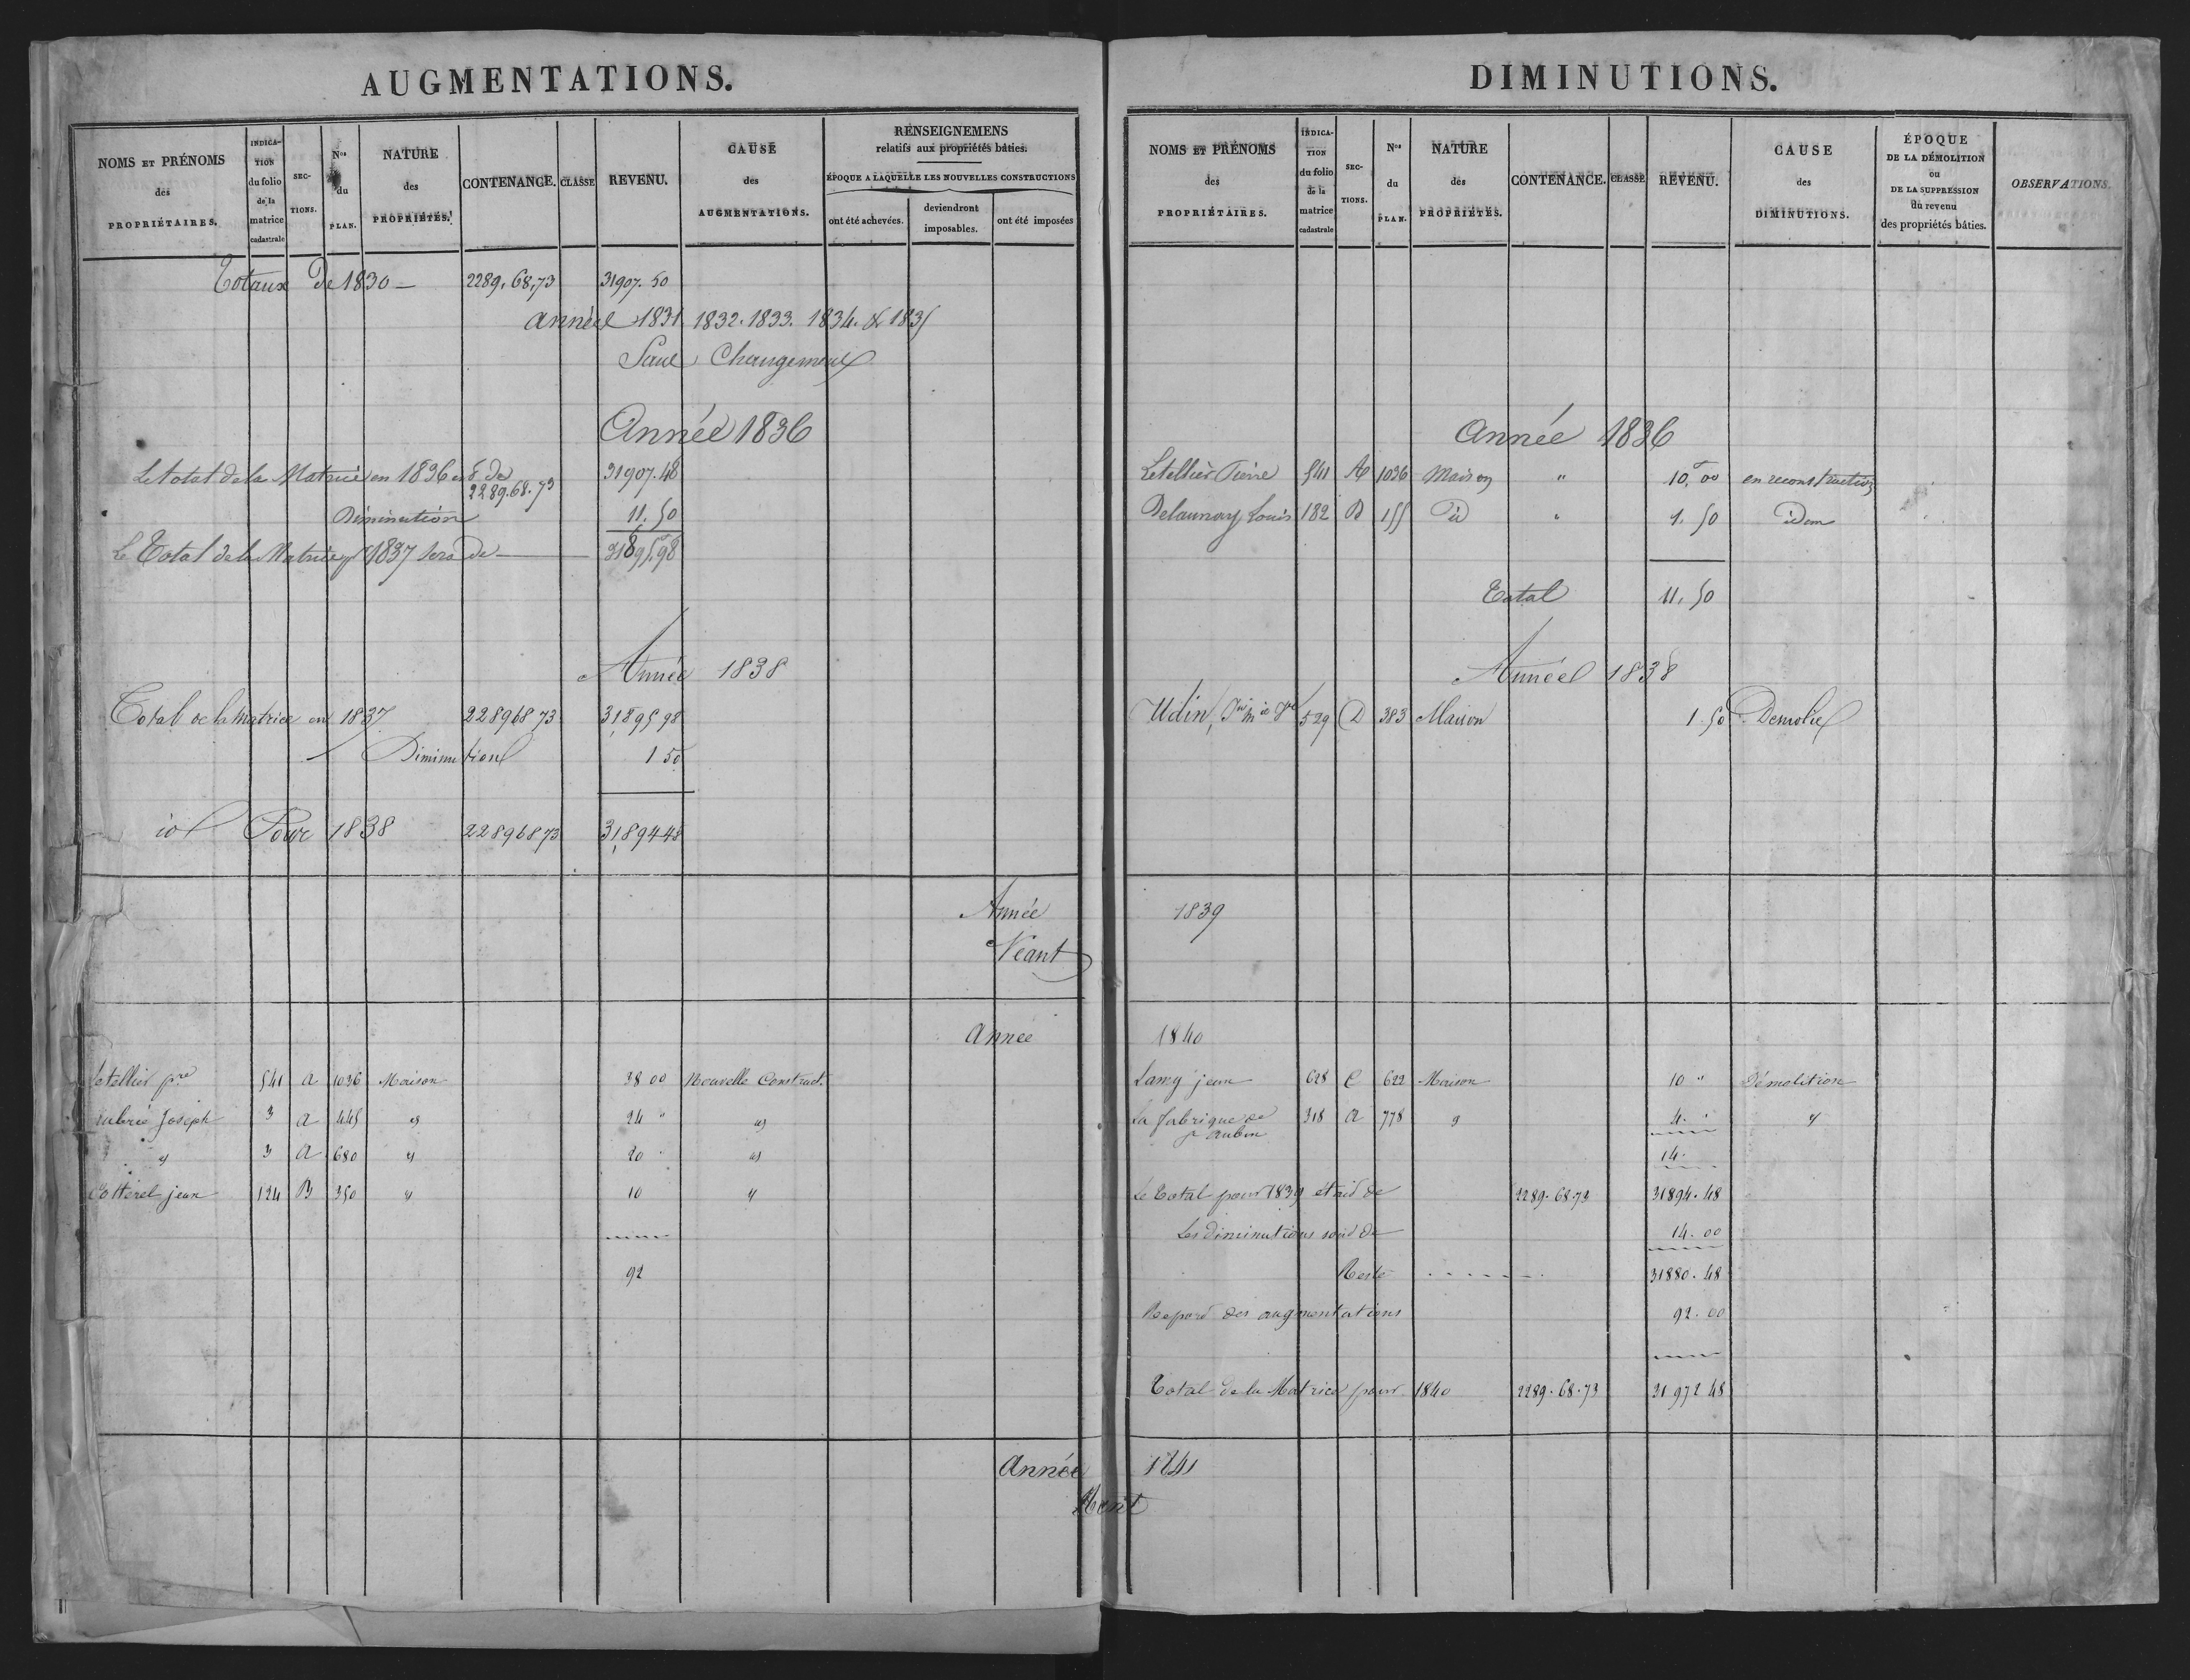 AUGMENTATIONS.
NOMS ET PRÉNOMS des PROPRIÉTAIRES.
INDICA-TION du folio de la matrice cadastrale
SEC-TIONS.
Nos du PLAN.
NATURE des PROPRIÉTÉS.
CONTENANCE.
CLASSE
REVENU.
CAUSE des AUGMENTATIONS.
RENSEIGNEMENS relatifs aux propriétés bâties.
ÉPOQUE A LAQUELLE LES NOUVELLES CONSTRUCTIONS
ont été achevées.
deviendront imposables.
ont été imposées
Totaux De 1830 — 2289,68,73 31907.50
année 1831 1832. 1833. 1834. & 1835
Sans Changement
Année 1836
Le total de la Matrice en 1836 est de 2289.68.73 31907.48
Diminution 11.50
Le Total de la Matrice pr 1837 sera de — 31895,98
Année 1838
Total de la matrice en 1837 2289 68 73 31,895 98
Diminution 1 50
id Pour 1838 2289 68 73 31,894 48
Année
Néant
Année
Letellier pre 541 a 1036 Maison 38 00 Nouvelle Construct.
Joseph 3 a 445 id 24 " id
id 3 a 680 id 20 " id
Cotterel jean 124 B 350 id 10 id
92
Année
Néant
DIMINUTIONS.
NOMS ET PRÉNOMS des PROPRIÉTAIRES.
INDICA-TION du folio de la matrice cadastrale
SEC-TIONS.
Nos du PLAN.
NATURE des PROPRIÉTÉS.
CONTENANCE.
CLASSE
REVENU.
CAUSE des DIMINUTIONS.
ÉPOQUE DE LA DÉMOLITION ou DE LA SUPPRESSION du revenu des propriétés bâties.
OBSERVATIONS.
Année 1836
Letellier Pierre 541 A 1036 Maison " 10,00 en reconstruction
Delaunay Louis 182 B 155 Id " 1.50 idem
Total 11.50
Année 1838
Udin, 529 D 383 Maison 1.50 Demolie
1839
1840
Lamy jean 628 C 622 Maison 10 " Démolition
La fabrique de St aubin 318 a 778 id 4. " id
14.
Le Total pour 1839 était de 2289.68.73 31894.48
Les diminutions sont de 14.00
Reste 31880.48
Report des augmentations 92.00
Total de la Matrice pour 1840 2289.68.73 31972 48
1841